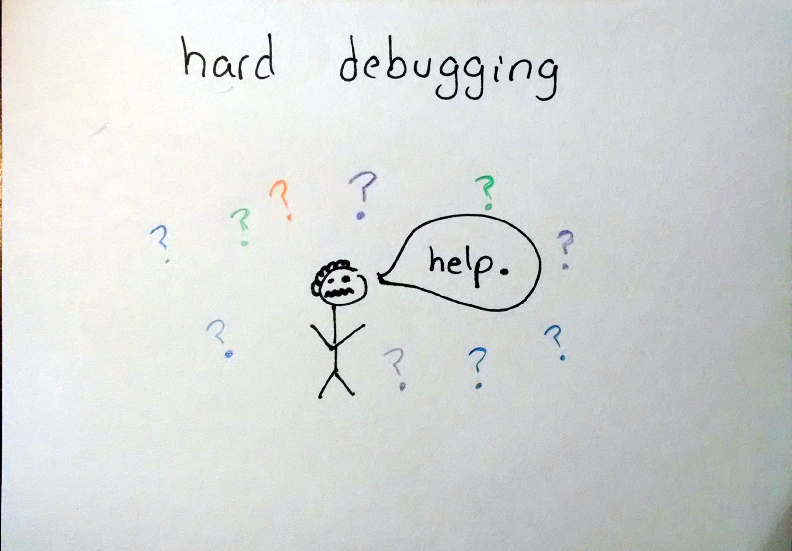 hard debugging
? ? ? ? ? ?
help.
? ? ? ?